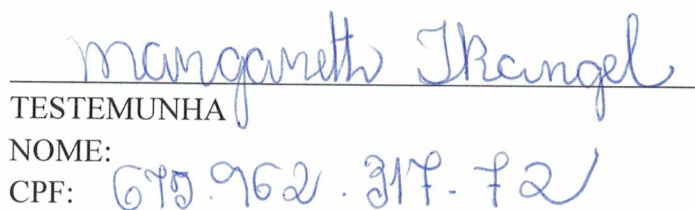 Margareth Rangel
TESTEMUNHA
NOME:
CPF: 675.962.317-72